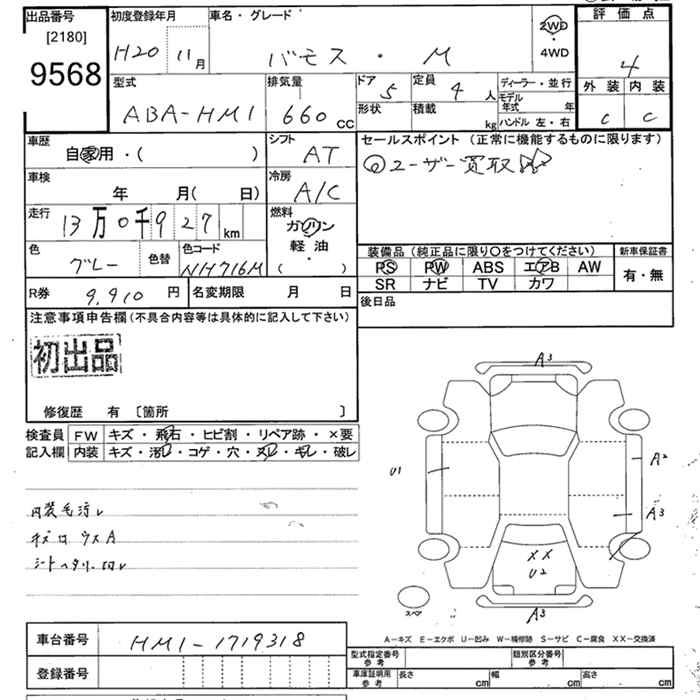 出品番号
[2180]
9568
初度登録年月
H20 11月
車名・グレード
バモス・M
2WD
・
4WD
評価点
4
外装 内装
C C
型式
ABA-HM1
排気量
660 CC
ドア
5
定員
4 人
形状
積載
kg
ディーラー・並行
モデル
年式 年
ハンドル 左・右
車歴
自家用・( )
シフト
AT
セールスポイント (正常に機能するものに限ります)
ユーザー買取
車検
年 月( 日)
冷房
A/C
走行
13万0千927km
燃料
ガソリン
軽油
( ・ )
色
グレー
色替
色コード
NH716M
装備品(純正品に限り〇をつけてください)
PS PW ABS エアB AW
SR ナビ TV カワ
新車保証書
有・無
R券 9,910円
名変期限 月 日
後日品
注意事項申告欄(不具合内容等は具体的に記入して下さい)
初出品
修復歴 有〔箇所 〕
検査員
記入欄
FW キズ・飛石・ヒビ割・リペア跡・×要
内装 キズ・汚レ・コゲ・穴・スレ・キレ・破レ
内装毛汚レ
キズ
ウスA
シートヘタリ
A3
U1
A2
A3
XX
U2
スペア
A3
A-キズ E-エクボ U-凹み W-補修跡 S-サビ C-腐食 XX-交換済
車台番号
HM1-1719318
登録番号
型式指定番号
参考
類別区分番号
参考
車庫証明用
参考
長さ cm
幅 cm
高さ cm